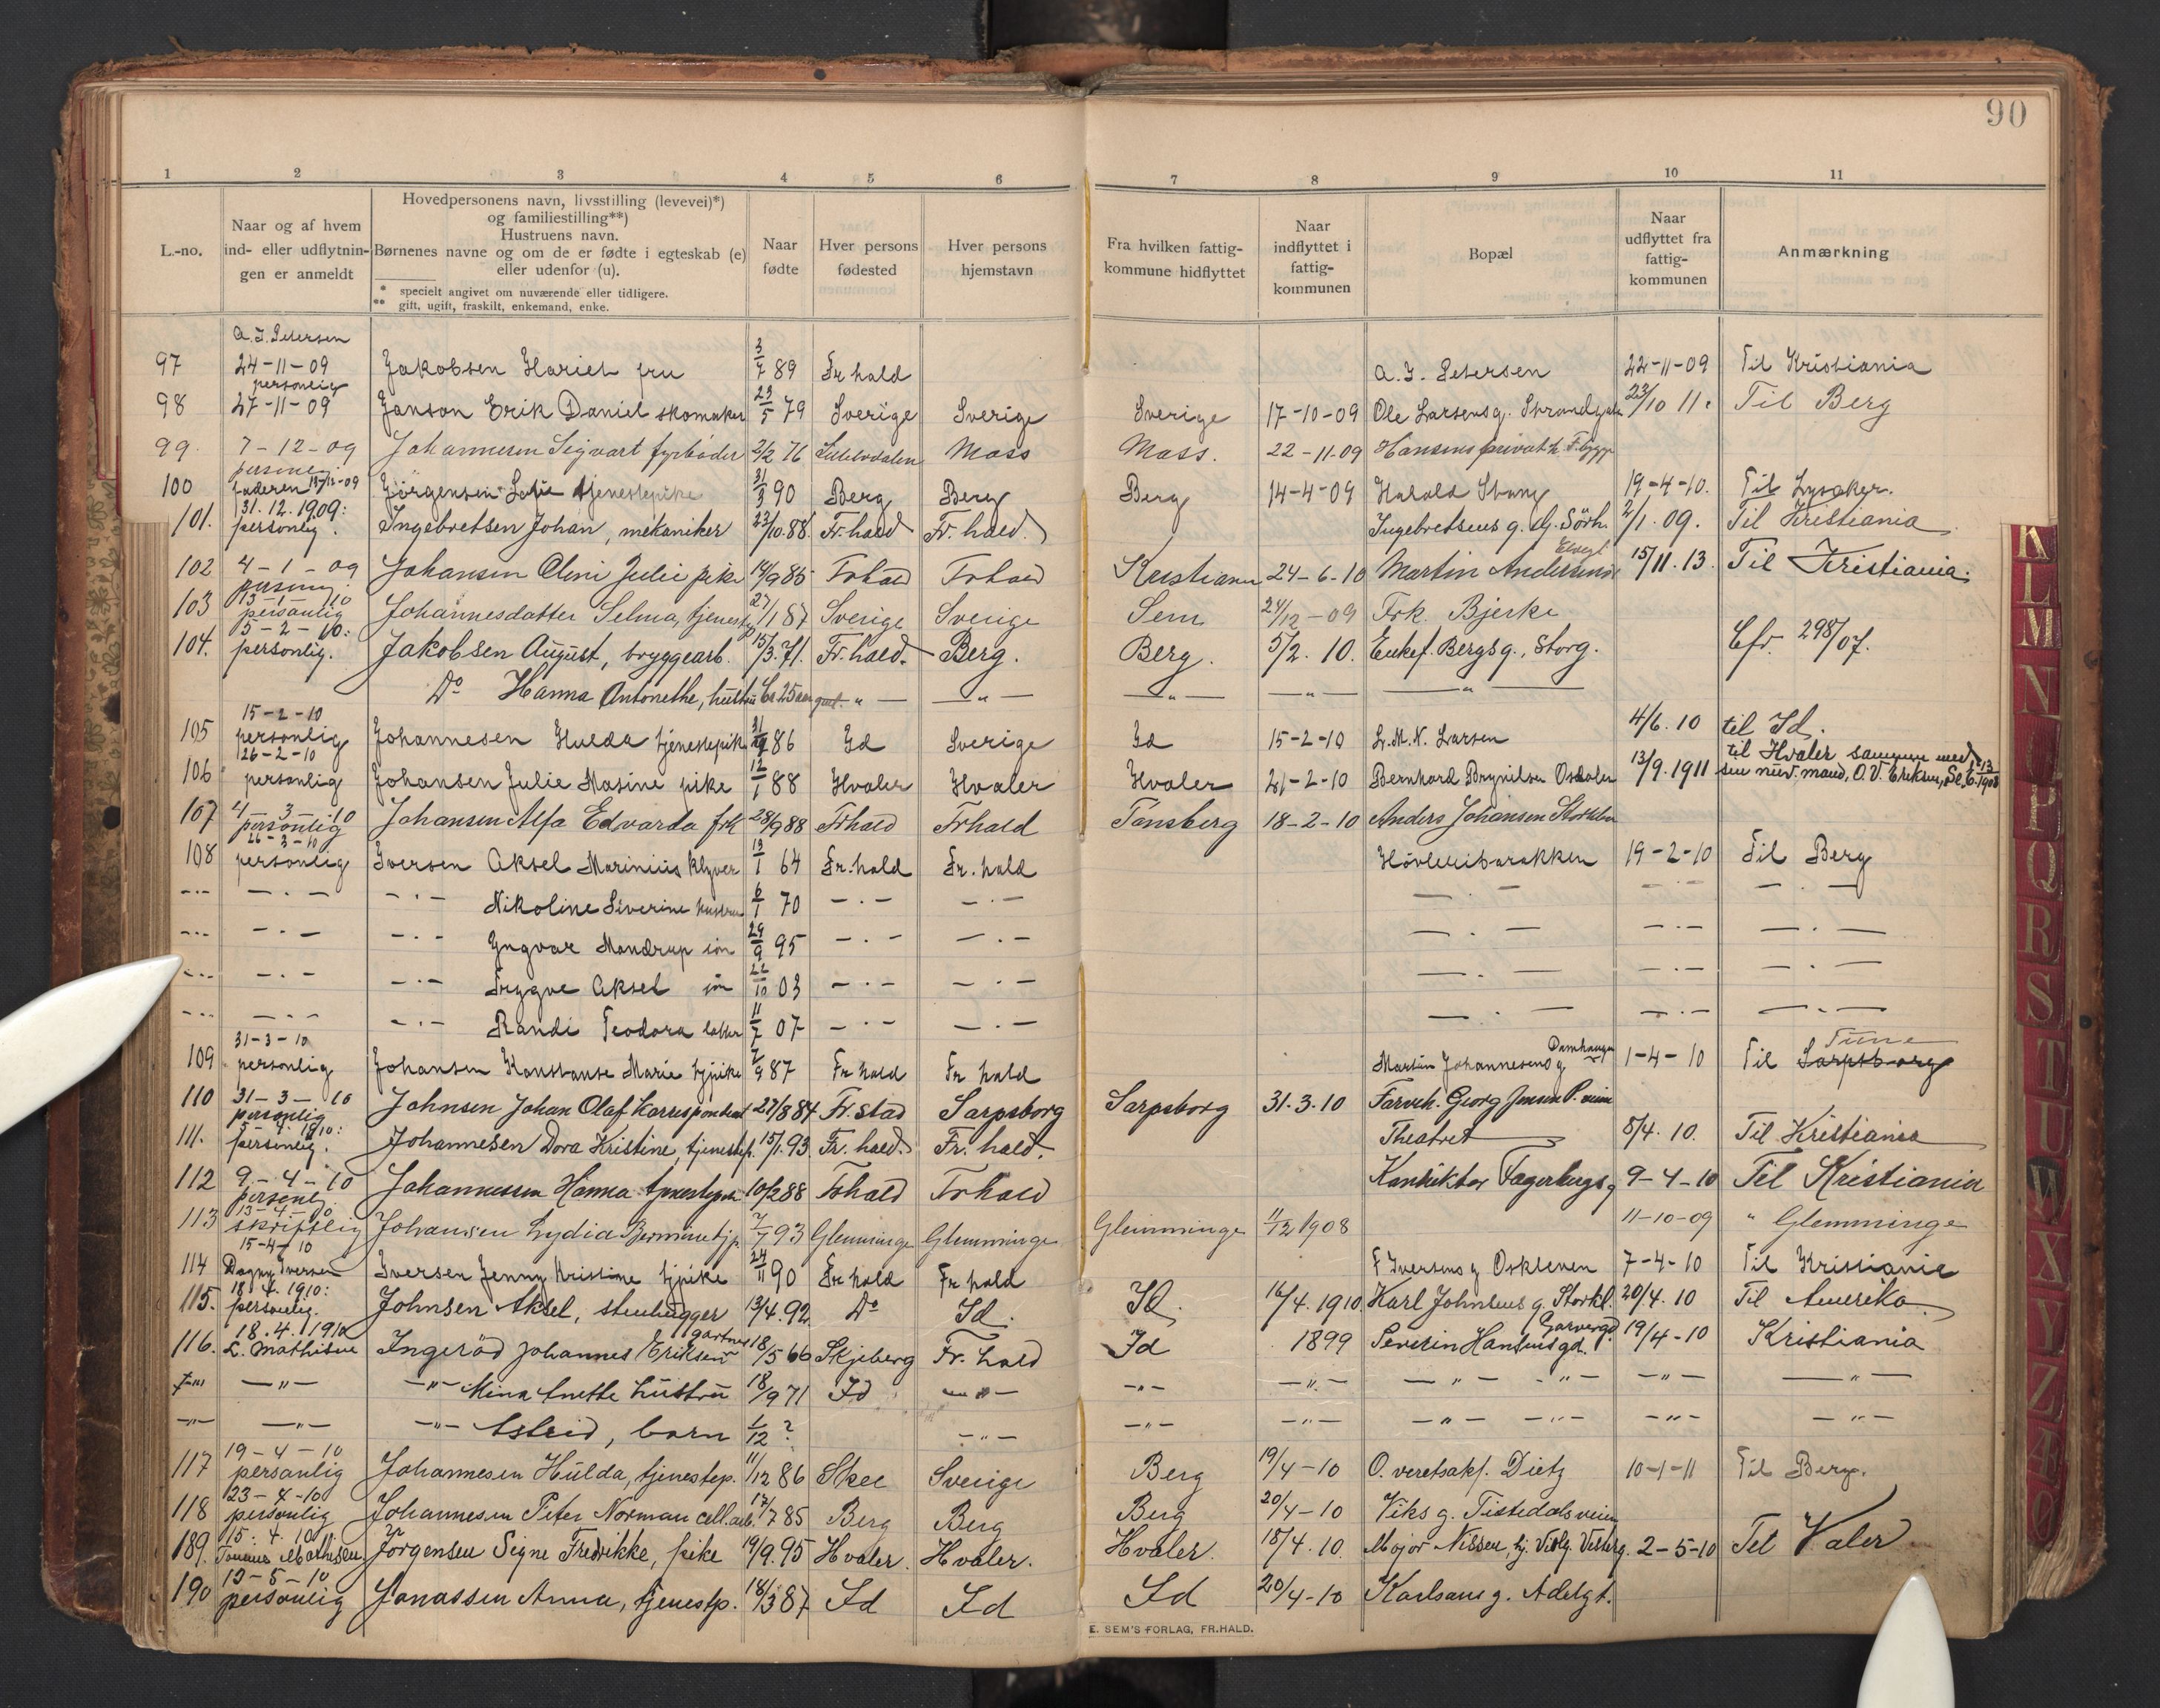 90
1 2 3 4 5 6 7 8 9 10 11
L.-no.
Naar og af hvem ind- eller udflytningen er anmeldt
Hovedpersonens navn, livsstilling (levevei)*) og familiestilling**) Hustruens navn. Børnenes navne og om de er fødte i egteskab (e) eller udenfor (u).
* specielt angivet om nuværende eller tidligere.
** gift, ugift, fraskilt, enkemand, enke.
Naar fødte
Hver persons fødested
Hver persons hjemstavn
Fra hvilken fattig-kommune hidflyttet
Naar indflyttet i fattig-kommunen
Bopæl
Naar udflyttet fra fattig-kommunen
Anmærkning
97 A. J. Petersen 24-11-09 Jakobsen Hariet fru 3/7 89 Fr hald A. J. Petersen 22-11-09 Til Kristiania
98 personlig 27-11-09 Janson Erik Daniel skomaker 23/5 79 Sverige Sverige Sverige 17-10-09 Ole Larsens g. 23/10 11. Til Berg
99. 7-12-09 Johannesen Sigvart fyrbøder 2/2 76 Moss Moss. 22-11-09 Hansens privath.
100 13/12-09 Jørgensen tjenestepike 31/3 90 Berg Berg Berg 14-4-09 Harald Stang 19-4-10. Til Lysaker.
101. 31.12.1909: personlig. Ingebretsen Johan, mekaniker 23/10.88. Fr. hald Fr. hald. Ingebretsens g. 2/1.09. Til Kristiania
102 4-1-09 Johansen Oleni Julie pike 14/9 85 Frhald Frhald 24-6-10 Martin Andersens 15/11.13. Til Kristiania.
103 13-1-10 personlig Johannesdatter Selma, tjenestp 27/1 87 Sverige Sverige Sem 24/12-09 Frk. Bjerke
104. 5-2-10: personlig. Jakobsen August, bryggearb. 15/3.71. Fr. hald. Berg. Berg. 5/2.10. Enkef. Bergs g., Storg. Cfr. 298/07.
Do Hanna Antonethe, hustru — " — — " — — " — — " —
105 15-2-10 personlig Johannesen Hulda tjenestepik 86 Id Sverige Id 15-2-10 L. M. N. Larsen 4/6.10 til Id.
106 26-2-10 personlig Johansen Julie Masine pike 12/1 88 Hvaler Hvaler Hvaler 21-2-10 Bernhard Brynilsen Osdalen 13/9.1911 til Hvaler sammen med sin nuv. mand, O. V. Eriksen,
107 4-3-10 personlig Johansen Alfa Edvarda frk 28/9 88 Frhald Frhald Tønsberg 18-2-10 Anders Johansen
108 26-3-10 personlig Iversen Aksel Marinius Kløver 13/1 64 Fr. hald Fr. hald Høvleribarakken 19-2-10 Til Berg
— . — Nikoline Severine hustru 6/1 70 — . — — . —
— . — Yngvar Mandrup søn 29/9 95 — . — — . —
— . — Trygve Aksel søn 22/10 03 — . — — . —
— . — Randi Teodora datter 11/7 07 — . — — . —
109 31-3-10 personlig Johansen Konstanse Marie tjpike 7/9 87 Fr hald Fr hald Martin Johannesens g Damhaugen 1-4-10 Til Sarpsborg Tune
110 31-3-10 personlig Johnsen Johan Olaf Korrespondent 27/8 84 Fr. stad Sarpsborg Sarpsborg 31.3.10 Farveh. Georg Jensen
111. personlig. Johannesen Dora Kristine, tjenestep. 15/1.93. Fr. hald. Fr. hald. Theatret 8/4.10. Til Kristiania
112 9-4-10 Johannessen Hanna tjenestepik 10/2 88 Frhald Frhald Konduktør Fagerbergs g 9-4-10 Til Kristiania
113 13-4-10 skriftlig Johansen Lydia Bermine tjp. 7/7 93 Glemminge Glemminge Glemminge 11/12 1908 11-10-09 " Glemminge
114 15-4-10 Dagny Iversen Iversen Jenny Kristine tjpike 24/11 90 Fr hald Fr hald F Iversens g Oskleven 7-4-10 Til Kristiania
115. 18.4.1910: personlig. Johnsen Aksel, stenhugger 13/4.92. Do Id. Id. 16/4.1910. Karl Johnsens g. Storkl. 20/4.10 Til Amerika.
116. 18.4.1910 L. Mathisen Ingerød Johannes Eriksen gartner 18/5 66 Skjeberg Fr. hald Id 1899 Severin Hansens gd. Garverg. 19/4-10 Kristiania
— " — — " — Mina Anette hustru 18/9 71 Id — " — — " — — " — — " — — " — — " —
— " — — " — Astrid, barn 1/12 ? — " — — " — — " — — " — — " — — " —
117 19-4-10 personlig Johannesen Hulda, tjenestep. 11/12 86 Skee Sverige Berg 19/4-10 O. veretsakf. Dietz 10-1-11 Til Berg.
118 23-4-10 personlig Johannesen Peter Norman cell.arb. 17/7 85 Berg Berg Berg 20/4-10 Viks g. Tistedalsveien
189. 15.4.10 Tomas Mathisen Jørgensen Signe Fredrikke, pike 19/9.95 Hvaler. Hvaler. Hvaler. 18/4.10. Major Nissen, 2-5-10 Til Valer
190 13-5-10 personlig Jonassen Anna, tjenestp. 18/3 87 Id Id Id 20/4-10 Karlsens g. Adelgt.
E. SEM'S FORLAG, FR.HALD.
K
L
M
N
P
Q
R
S
T
U
W
X
Y
Z
Æ
Ø